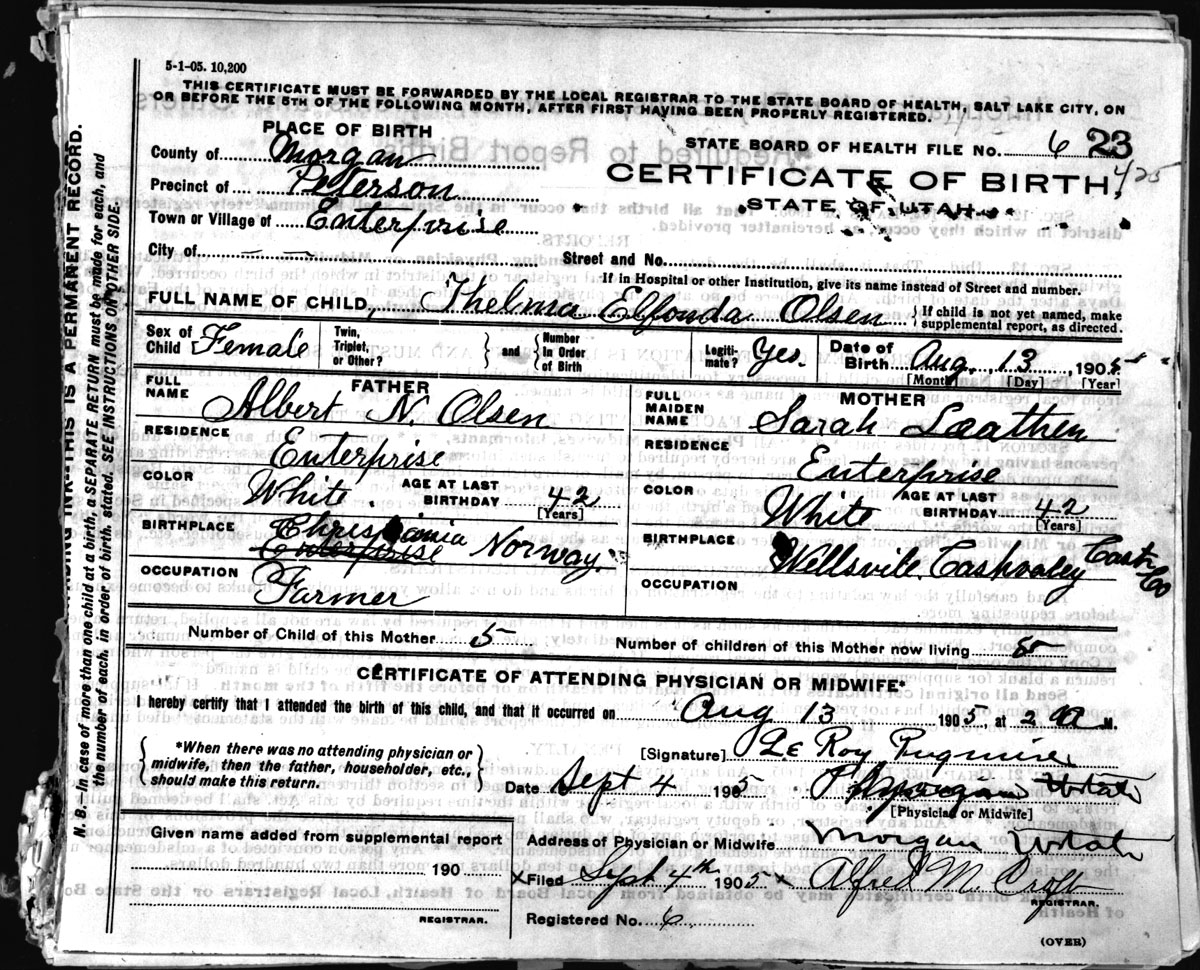 5-1-05. 10,200
THIS CERTIFICATE MUST BE FORWARDED BY THE LOCAL REGISTRAR TO THE STATE BOARD OF HEALTH, SALT LAKE CITY, ON
OR BEFORE THE 5TH OF THE FOLLOWING MONTH, AFTER FIRST HAVING BEEN PROPERLY REGISTERED.
PLACE OF BIRTH
STATE BOARD OF HEALTH FILE No. 6 23
County of Morgan
CERTIFICATE OF BIRTH 425
Precinct of Peterson
STATE OF UTAH
Town or Village of Enterprise
City of — —
Street and No.
If in Hospital or other Institution, give its name instead of Street and number.
FULL NAME OF CHILD, Thelma Elfonda Olsen } If child is not yet named, make supplemental report, as directed.
Sex of Child Female Twin, Triplet, or Other? } and { Number in Order of Birth Legitimate? Yes. Date of Birth Aug. 13, 1905
[Month] [Day] [Year]
FATHER
FULL NAME Albert N. Olsen
RESIDENCE Enterprise
COLOR White. AGE AT LAST BIRTHDAY 42
[Years]
BIRTHPLACE Norway
Enterprise
OCCUPATION Farmer
MOTHER
FULL MAIDEN NAME Sarah Leathen
RESIDENCE Enterprise
COLOR White AGE AT LAST BIRTHDAY 42
[Years]
BIRTHPLACE Wellsvile. Cashvaley
OCCUPATION
Number of Child of this Mother 5 Number of children of this Mother now living 5
CERTIFICATE OF ATTENDING PHYSICIAN OR MIDWIFE*
I hereby certify that I attended the birth of this child, and that it occurred on Aug 13 1905, at 2 a M.
{ *When there was no attending physician or midwife, then the father, householder, etc., should make this return. }
[Signature] Le Roy Pugmire
Date Sept 4 1905. Morgan Utah
[Physician or Midwife]
Given name added from supplemental report
190
REGISTRAR.
Address of Physician or Midwife Morgan Utah
x Filed Sept 4th 1905 x Alfred M.
REGISTRAR.
Registered No. 6
(OVER)
THIS IS A PERMANENT RECORD.
N. B.—In case of more than one child at a birth, a SEPARATE RETURN must be made for each, and
the number of each, in order of birth, stated. SEE INSTRUCTIONS ON OTHER SIDE.